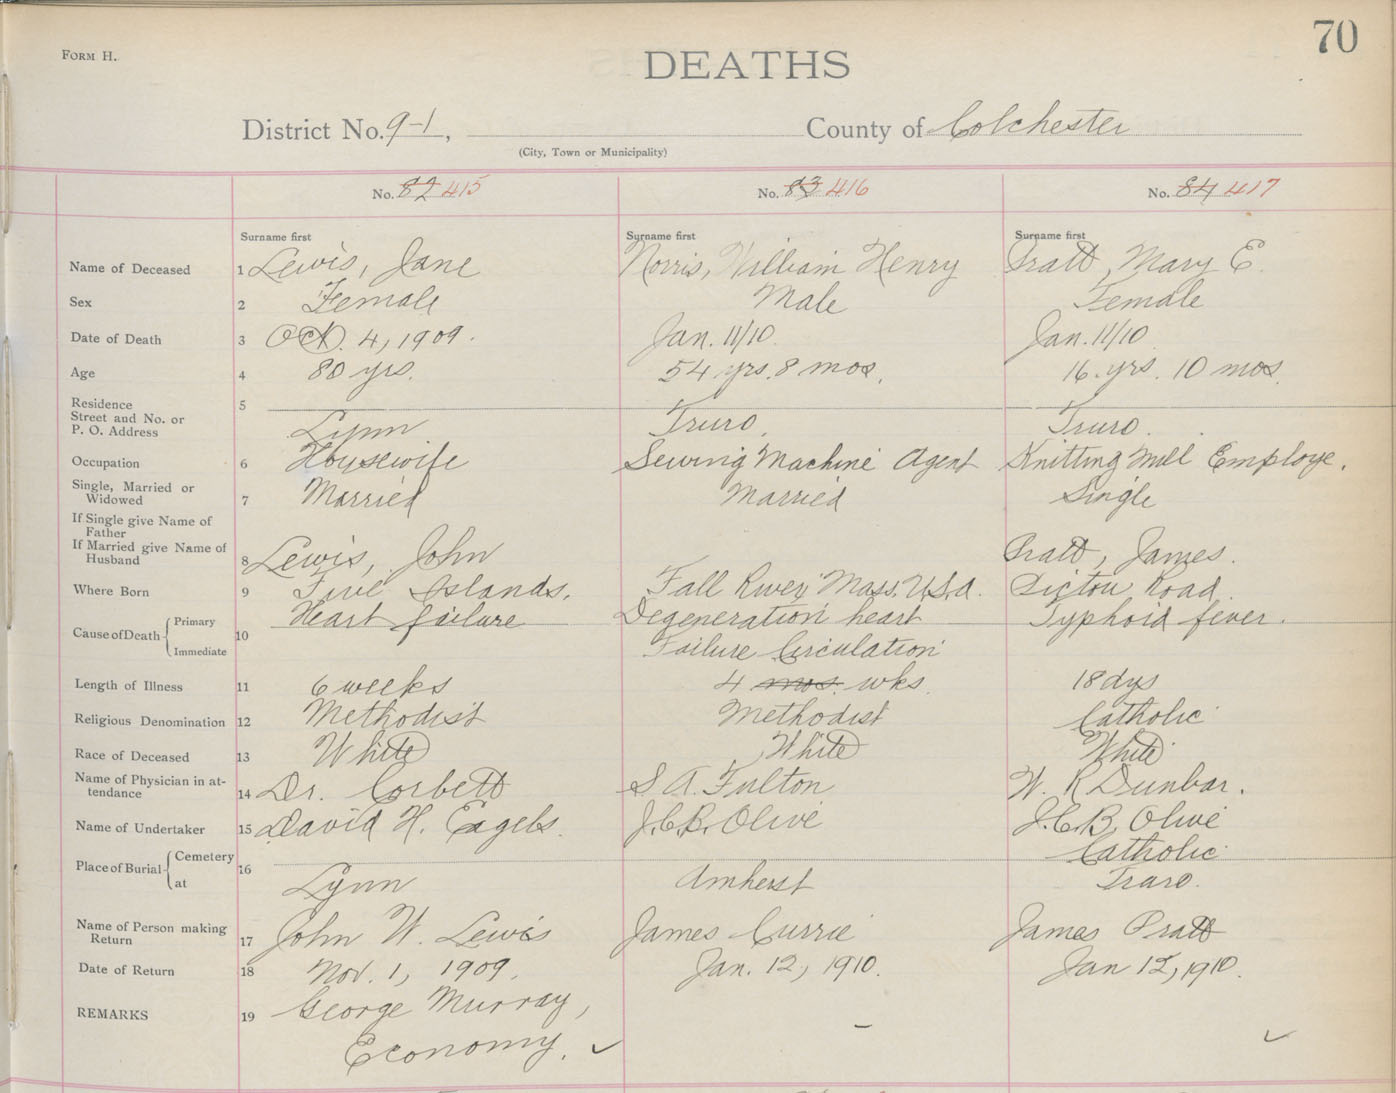 70
FORM H.
DEATHS
District No. 9-1, County of Colchester
(City, Town or Municipality)
No. 82 415 No. 83 416 No. 84 417
Surname first Surname first Surname first
Name of Deceased 1 Lewis, Jane Norris, William Henry Pratt, Mary E.
Sex 2 Female Male Female
Date of Death 3 Oct. 4, 1909. Jan. 11/10. Jan. 11/10
Age 4 80 yrs. 54 yrs. 8 mos. 16 yrs. 10 mos.
Residence 5
Street and No. or
P. O. Address Lynn Truro, Truro.
Occupation 6 Housewife Sewing Machine Agent Knitting Mill Employe.
Single, Married or
Widowed 7 Married Married Single
If Single give Name of
Father
If Married give Name of
Husband 8 Lewis, John Pratt, James.
Where Born 9 Five Islands. Fall River Mass. U.S.A. Pictou Road.
Cause of Death Primary Heart failure Degeneration heart Typhoid fever.
10
Immediate Failure Circulation
Length of Illness 11 6 weeks 4 mos. wks. 18 dys
Religious Denomination 12 Methodist Methodist Catholic
Race of Deceased 13 White White White
Name of Physician in at-
tendance 14 Dr. Corbett S A. Fulton W. R Dunbar.
Name of Undertaker 15 David H. Eagels. J.C.B. Olive J.C.B. Olive
Place of Burial Cemetery 16 Catholic
at Lynn Amherst Truro.
Name of Person making
Return 17 John W. Lewis James Currie James Pratt
Date of Return 18 Nov. 1, 1909. Jan. 12, 1910. Jan 12, 1910.
REMARKS 19 George Murray,
Economy.